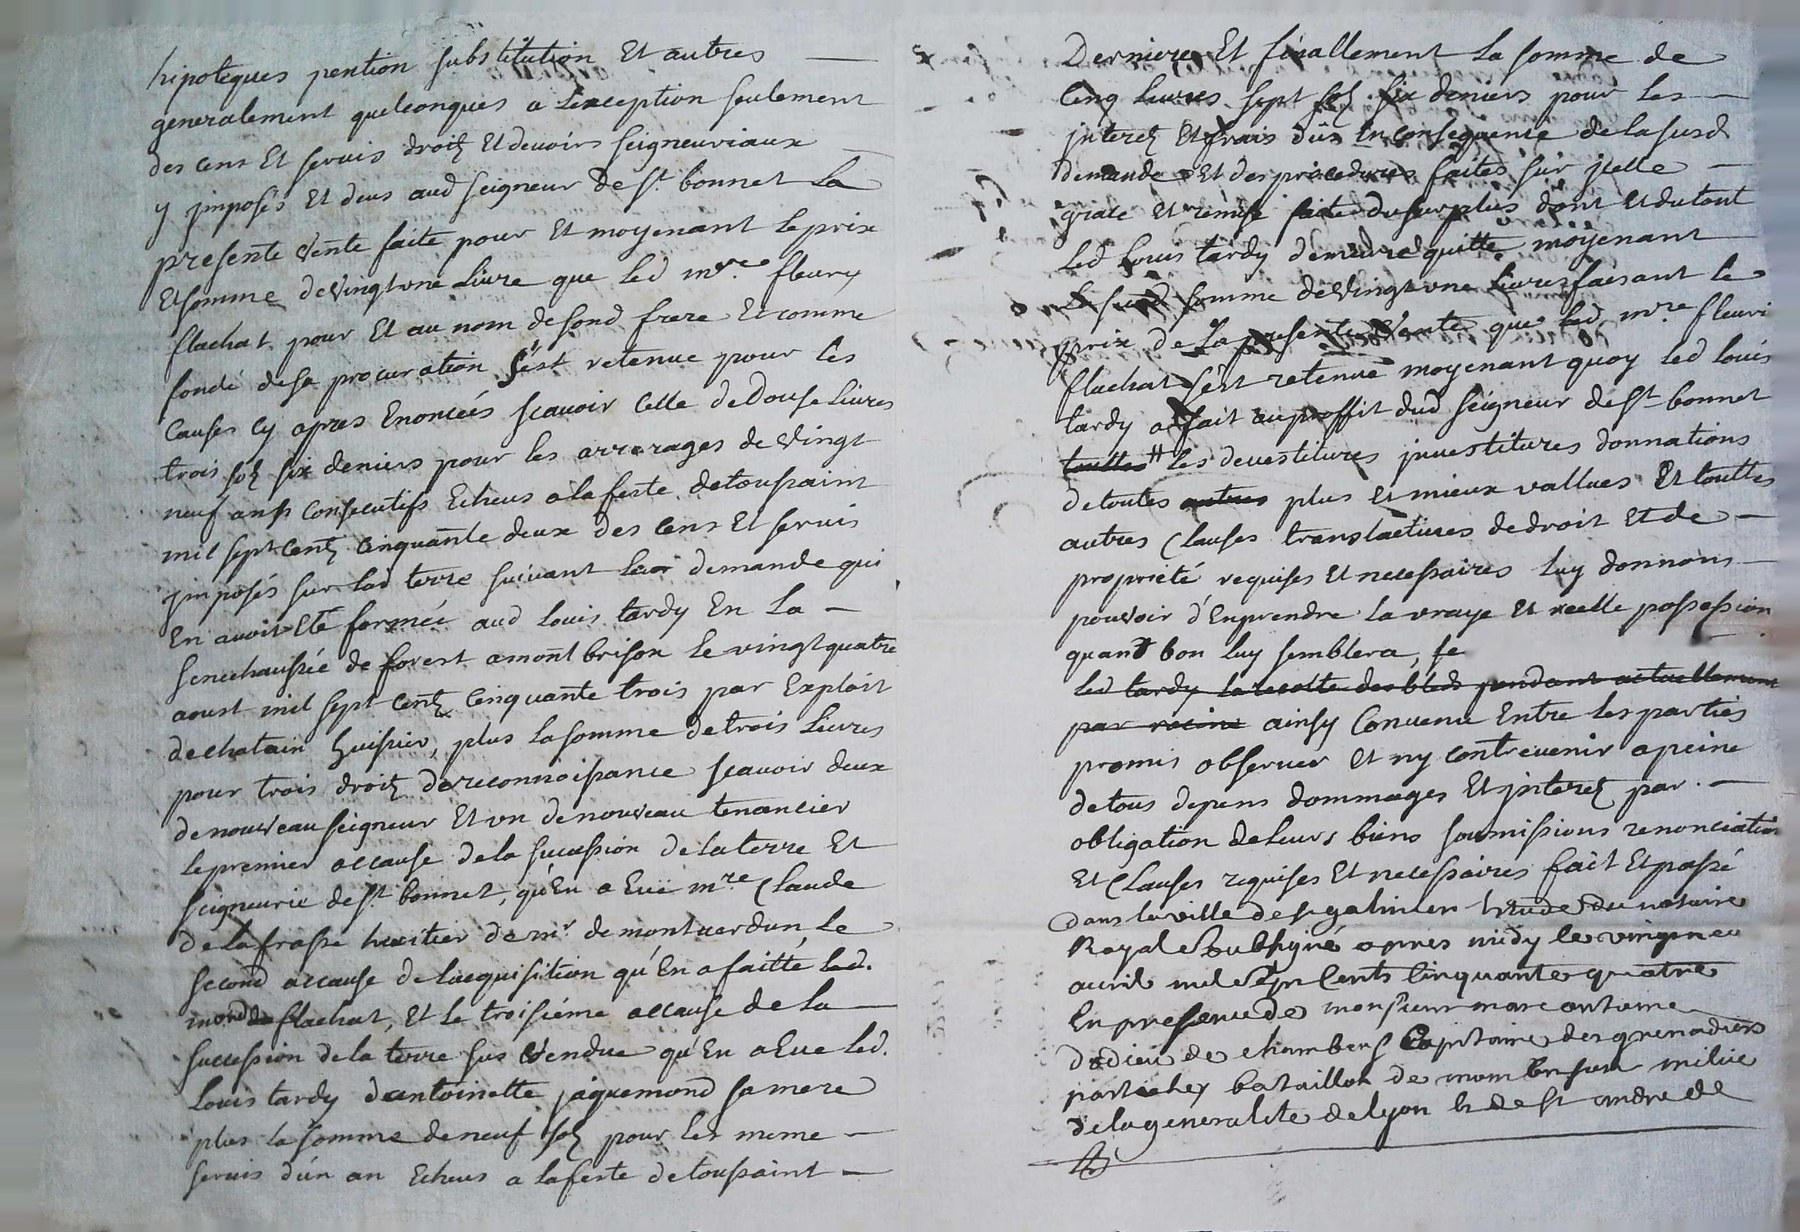 hipoteques pention substitution Et autres
generalement quelconques a Lexception seulement
des cens Et servis droitz Et devoirs seigneuriaux
y jmposés Et deus aud seigneur de St. bonnet La
presente vente faite pour Et moyenant Le prix
Et somme de vingt une Livre que led mre. fleury
flachat pour Et au nom de sond frere Et comme
fondé de sa procuration s'est retenue pour les
causes cy apres Enoncées scavoir Celle de Douse Livres
trois solz six deniers pour les arrerages de vingt
neuf ans consecutifs Echeus a la feste de toussaint
mil sept centz cinquante deux des cens Et servis
jmposés sur lad terre suivant la demande qui
En avoit Eté formée aud Louis tardy En La
senechaussée de forest a montbrison Le vingt quatre
aoust mil sept centz cinquante trois par Exploit
de chatain huissier, plus La somme de trois Livres
pour trois droitz de reconnoissance scavoir deux
de nouveau seigneur Et un de nouveau tenancier
Le premier accause de la succession de la terre Et
seigneurie de St. bonnet, qu'En a Eue mre. Claude
de La frasse heritier de mr. de montverdun, Le
second accause de Lacquisition qu'En a faitte led.
flachat, Et Le troisiéme accause de La
succession de la terre sus vendue qu'En a Eue Led.
Louis tardy d'antoinette jaquemond sa mere
plus la somme de neuf solz pour les meme
servis d'un an Echeus a La feste de toussaint
Derniere Et finallement La somme de
Cinq Livres sept solz six deniers pour les
jnteretz Et frais dûs En consequence de la susd
demande Et des procedures faites sur jcelle
grace Et remise faite du surplus dont Et du tout
Led Louis tardy demeure quitte moyenant
La susd somme de vingt une Livres faisant le
prix de La presente vente que led mre fleuri
flachat s'est retenue moyenant quoy Led Louis
tardy a fait au proffit dud seigneur de St. bonnet
touttes Les devestitures jnvestitures donnations
de toutes autres plus Et mieux vallues Et touttes
autres Clauses translatives de droit Et de
proprieté requises Et necessaires Luy donnant
pouvoir d'En prendre La vraye Et reelle possession
quand bon luy semblera, se
led tardy la recolte des bleds pendant actuellement
par racine ainsy Convenu Entre les parties
promis observer Et ny contrevenir a peine
de tous depens dommages Et jnteretz par
obligation de Leurs biens soumissions renonciation
Et Clauses requises Et necessaires fait Et passé
dans la ville de st galmier Etude du notaire
Royal soussigné apres midy le vingt
avril mil sept Cents Cinquante quatre
En presence de monsieur marc antoine
dodieu de chambers Capitaine des grenadiers
bataillon de milice
de la generalite de lyon de st andre